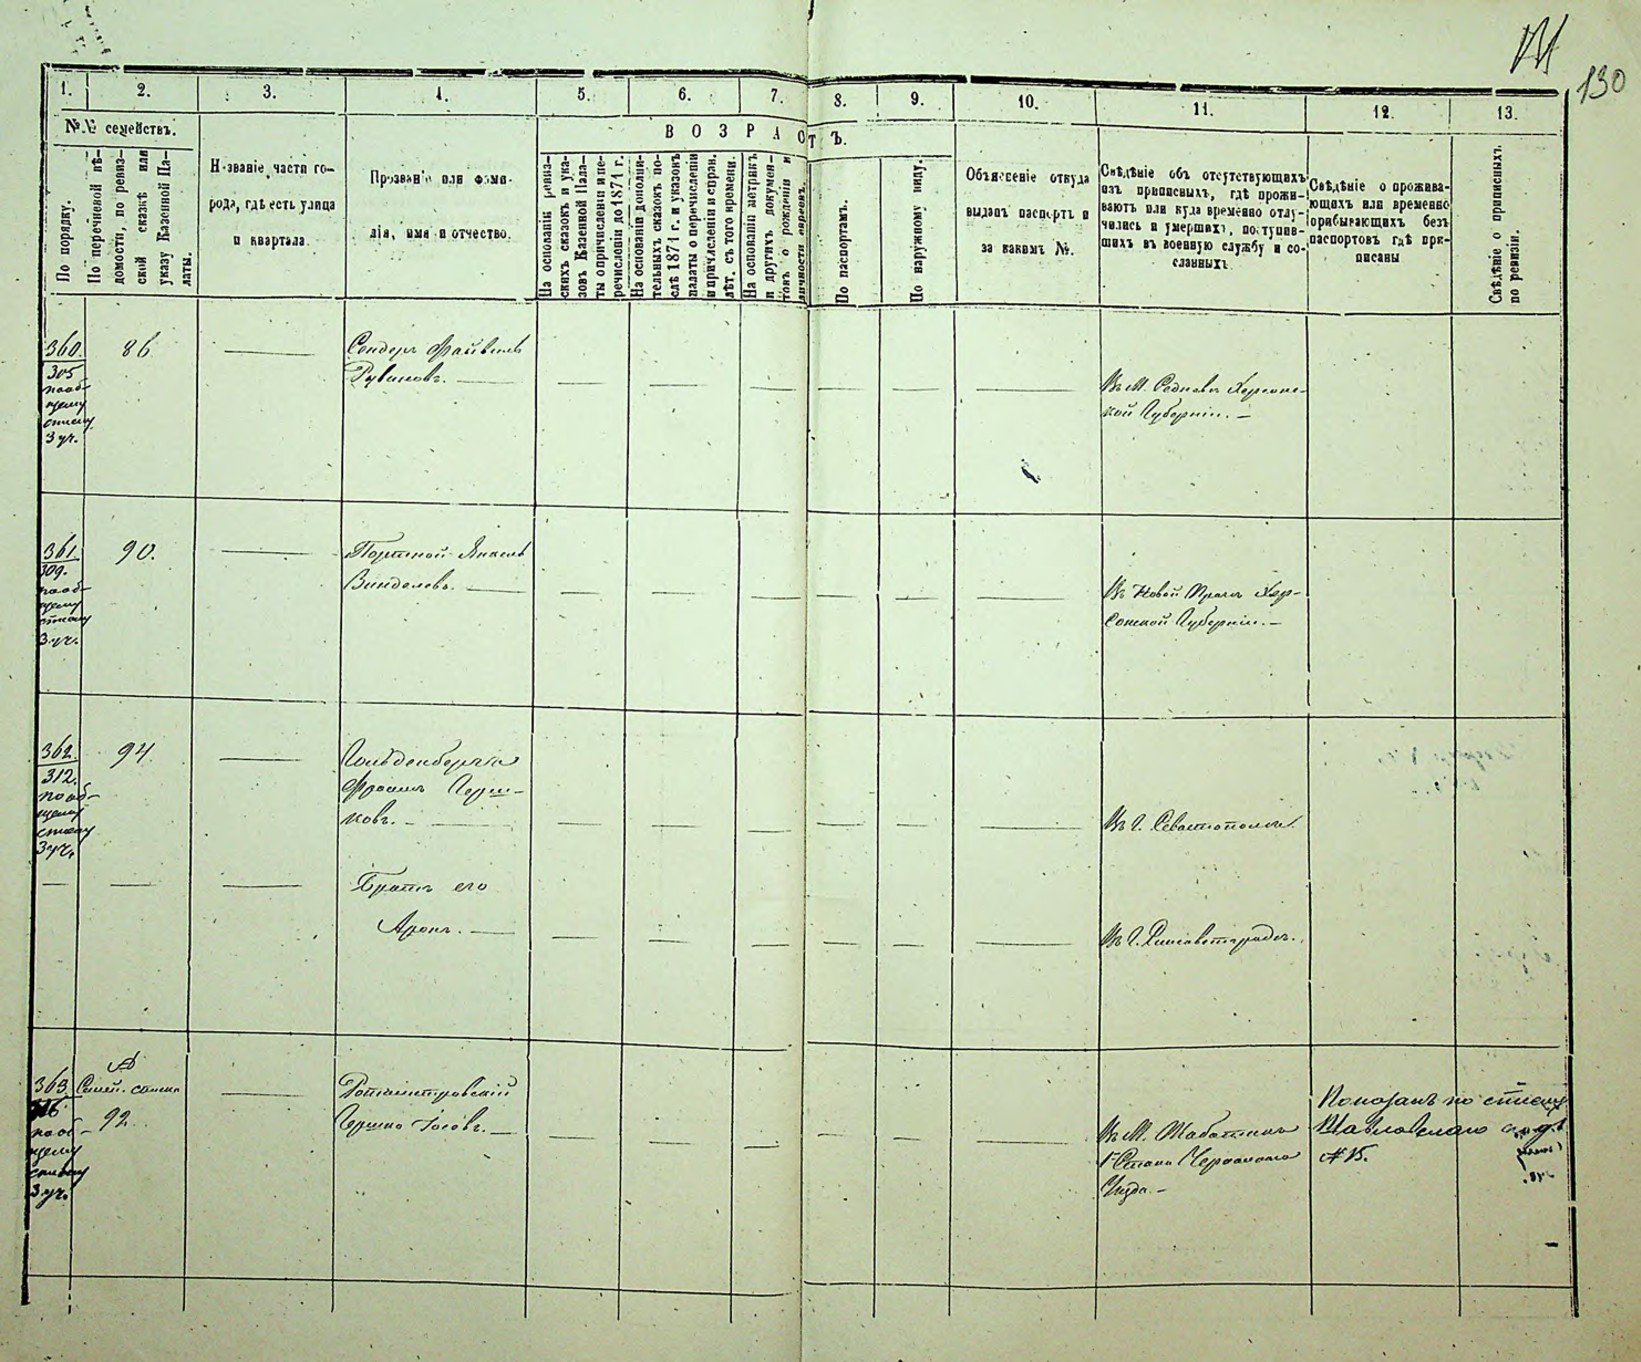 130
1.
2.
3.
4.
5.
6.
7.
8.
9.
10.
11.
12.
13.
№№ семействъ.
По порядку.
По перечневой вѣ-
домости, по ревиз-
ской сказкѣ или
указу Казенной Па-
латы.
Названіе части го-
рода, гдѣ есть улица
и квартала
Прозваніе или фами-
лія, имя и отчество.
ВОЗРАСТЪ.
На основаніи ревиз-
скихъ сказокъ и ука-
зовъ Казенной Пала-
ты о причисленіи и пе-
речисленіи до 1874 г.
На основаніи дополни-
тельныхъ сказокъ по-
слѣ 1874 г. и указовъ
палаты о перечисленіи
и причисленіи и справ.
лѣт. съ того времени.
На основаніи метрикъ
и другихъ докумен-
товъ о рожденіи и
личности евреевъ.
По паспортамъ.
По наружному виду.
Объясненіе откуда
выданъ паспортъ и
за какимъ №.
Свѣдѣніе объ отсутствующихъ
изъ приписныхъ, гдѣ прожи-
ваютъ или куда временно отлу-
чились и умершихъ, поступив-
шихъ въ военную службу и со-
сланныхъ
Свѣдѣніе о прожива-
ющихъ или временно
прибывающихъ безъ
паспортовъ гдѣ при-
писаны
Свѣдѣніе о приписныхъ
по ревизіи.
360.
305
по об-
щему
списку
3 уч.
86
Сендеръ Файвель
Рувиновъ.
Въ М. Херсонс-
кой Губерніи.
361.
309.
по об-
щему
списку
3 уч.
90.
Портной Янкель
Въ Новой Праги Хер-
сонской Губерніи.
362.
312.
по об-
щему
списку
3 уч.
94.
Гольденбергъ
Фроимъ Герш-
ковъ.
Въ Г. Севастополѣ.
Братъ его
Аронъ.
Въ Г. Елисаветградѣ.
363
по об-
щему
списку
3 уч.
Семей. списка
92.
Ротмистровскій
Гершко Іосевъ.
Въ М. Шабатинъ
1 Стана Черкасскаго
Уѣзда
Показанъ по списку
Павловскаго
№ 15.